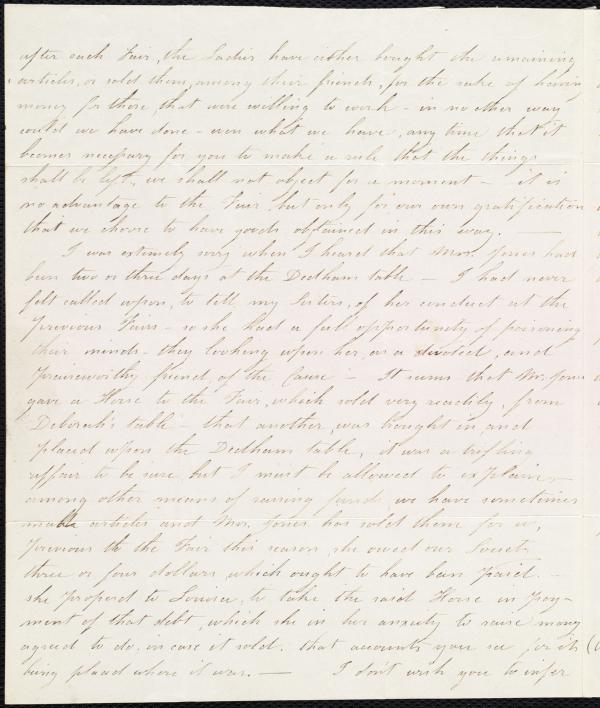 after each Fair, the Ladies have either bought the remaining
articles, or sold them, among their friends, for the sake of having
money for those, that were willing to work - in no other way
could we have done - even what we have, any time that it
becomes necessary for you to make a rule that the things
shall be left, we shall not object for a moment - it is
no advantage to the Fair, but only for our own gratification
that we choose to have goods obtained in this way. —
I was extremely sorry when I heard that Mrs. Jones had
been two or three days at the Dedham table - I had never
felt called upon, to tell, my Sisters, of her conduct at the
previous Fairs - so she had a full opportunity of poisoning
their minds - they looking upon her, as a devoted, and
praiseworthy friend, of the Cause - It seems that Mr. Jones
gave a Horse to the Fair, which sold very readily, from
Deborah's table - that another, was bought in and
placed upon the Dedham table, it was a trifling
affair to be sure, but I must be allowed to explain, -
among other means of raising funds, we have sometimes
made articles and Mrs. Jones has sold them for us,
previous to the Fair this season, she owed our Society
three or four dollars, which ought to have been paid. -
she proposed to Louisa, to take the said Horse in pay-
ment of that debt, which she in her anxiety to raise money
agreed to do, in case it sold. that accounts you see for its
being placed where it was. — I don't wish you to infer